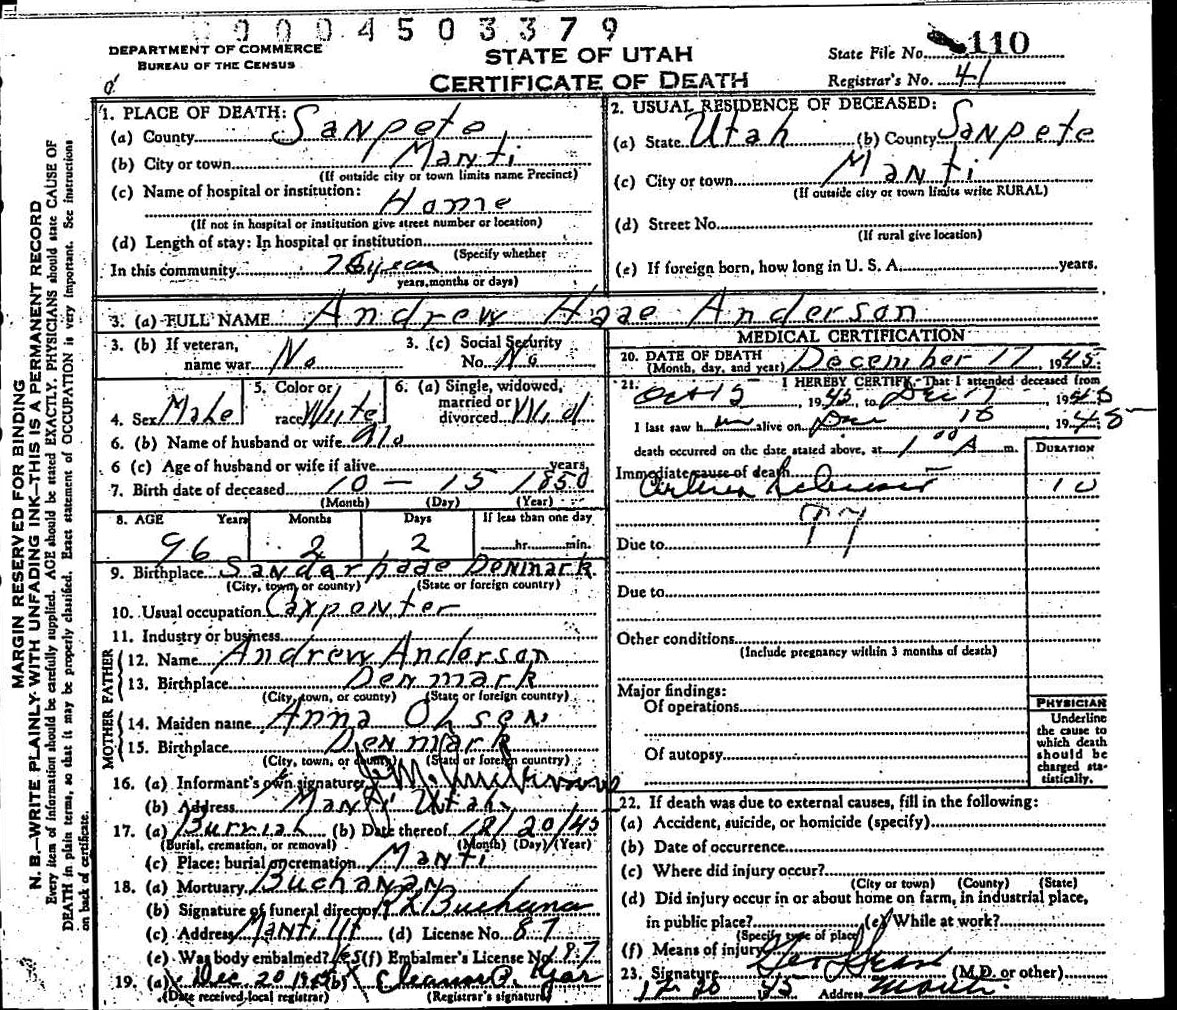 0004503379
DEPARTMENT OF COMMERCE
BUREAU OF THE CENSUS
STATE OF UTAH
CERTIFICATE OF DEATH
State File No. 110
Registrar's No. 41
MARGIN RESERVED FOR BINDING
N. B.—WRITE PLAINLY WITH UNFADING INK—THIS IS A PERMANENT RECORD
Every item of information should be carefully supplied. AGE should be stated EXACTLY. PHYSICIANS should state CAUSE OF
DEATH in plain terms, so that it may be properly classified. Exact statement of OCCUPATION is very important. See instructions
on back of certificate.
1. PLACE OF DEATH:
(a) County Sanpete
(b) City or town Manti
(If outside city or town limits name Precinct)
(c) Name of hospital or institution:
Home
(If not in hospital or institution give street number or location)
(d) Length of stay: In hospital or institution
(Specify whether
In this community years
years, months or days)
2. USUAL RESIDENCE OF DECEASED:
(a) State Utah (b) County Sanpete
(c) City or town Manti
(If outside city or town limits write RURAL)
(d) Street No.
(If rural give location)
(e) If foreign born, how long in U. S. A. years.
3. (a) FULL NAME Andrew Anderson
3. (b) If veteran, name war No
3. (c) Social Security No. No
4. Sex Male
5. Color or race White
6. (a) Single, widowed, married or divorced Wid
6. (b) Name of husband or wife
6 (c) Age of husband or wife if alive years
7. Birth date of deceased 10 — 15 1850
(Month) (Day) (Year)
8. AGE Years Months Days If less than one day
96 2 2 hr. min.
9. Birthplace Denmark
(City, town or county) (State or foreign country)
10. Usual occupation Carpenter
11. Industry or business
FATHER
12. Name Andrew Anderson
13. Birthplace Denmark
(City, town, or county) (State or foreign country)
MOTHER
14. Maiden name Anna Ohsen
15. Birthplace Denmark
(City, town, or county) (State or foreign country)
16. (a) Informant's own signature
(b) Address Manti Utah
17. (a) Burrial (b) Date thereof 12/20/45
(Burial, cremation, or removal) (Month) (Day) (Year)
(c) Place: burial or cremation Manti
18. (a) Mortuary Buchanan
(b) Signature of funeral director
(c) Address Manti Ut (d) License No. 87
(e) Was body embalmed? Yes (f) Embalmer's License No. 87
19. (a) Dec. 20 (b)
(Date received local registrar) (Registrar's signature)
MEDICAL CERTIFICATION
20. DATE OF DEATH December 17, 1945
(Month, day, and year)
21. I HEREBY CERTIFY, That I attended deceased from
Oct 15, 1945, to Dec 17, 1945
I last saw h im alive on Dec 16, 1945
death occurred on the date stated above, at 1 00 A m.
DURATION
Immediate cause of death
10
97
Due to
Due to
Other conditions
(Include pregnancy within 3 months of death)
Major findings:
Of operations
Of autopsy
PHYSICIAN
Underline
the cause to
which death
should be
charged sta-
tistically.
22. If death was due to external causes, fill in the following:
(a) Accident, suicide, or homicide (specify)
(b) Date of occurrence
(c) Where did injury occur?
(City or town) (County) (State)
(d) Did injury occur in or about home on farm, in industrial place,
in public place? (e) While at work?
(Specify type of place)
(f) Means of injury
23. Signature (M.D. or other)
Address Manti